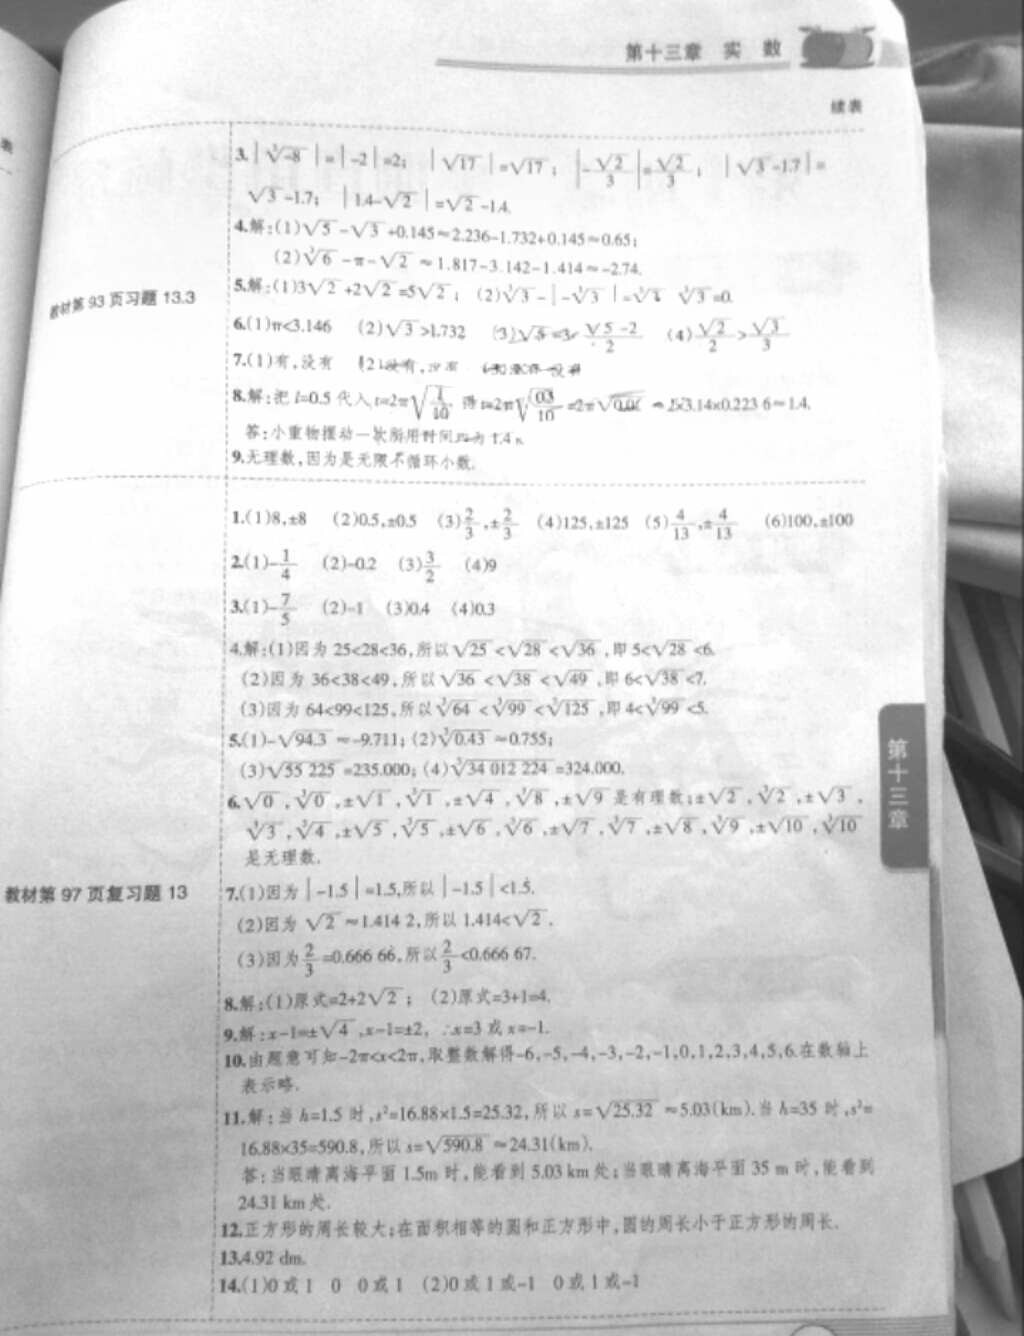 第十三章 实 数
续表
3.|∛-8|=|-2|=2; |√17|=√17; |-√2/3|=√2/3; |√3-1.7|=
√3-1.7; |1.4-√2|=√2-1.4.
4.解:(1)√5-√3+0.145≈2.236-1.732+0.145≈0.65;
(2)∛6-π-√2≈1.817-3.142-1.414≈-2.74.
教材第93页习题13.3
5.解:(1)3√2+2√2=5√2; (2)∛3-|-∛3|=∛3-∛3=0.
6.(1)π<3.146 (2)√3>1.732 (3) √5-2/2 (4)√2/2>√3/3
7.(1)有,没有 (2)没有,
8.解:把l=0.5代入t=2π√(l/10) 得t=2π√(0.5/10)=2π√0.05≈2×3.14×0.223 6≈1.4.
答:小重物摆动一次所用时间 1.4 s.
9.无理数,因为是无限不循环小数.
1.(1)8,±8 (2)0.5,±0.5 (3)2/3,±2/3 (4)125,±125 (5)4/13,±4/13 (6)100,±100
2.(1)-1/4 (2)-0.2 (3)3/2 (4)9
3.(1)-7/5 (2)-1 (3)0.4 (4)0.3
4.解:(1)因为25<28<36,所以√25<√28<√36,即5<√28<6.
(2)因为36<38<49,所以√36<√38<√49,即6<√38<7.
(3)因为64<99<125,所以∛64<∛99<∛125,即4<∛99<5.
5.(1)-√94.3≈-9.711; (2)∛0.43≈0.755;
(3)√55 225=235.000; (4)∛34 012 224=324.000.
6.√0,∛0,±√1,∛1,±√4,∛8,±√9是有理数;±√2,∛2,±√3,
∛3,∛4,±√5,∛5,±√6,∛6,±√7,∛7,±√8,∛9,±√10,∛10
是无理数.
第十三章
教材第97页复习题13
7.(1)因为|-1.5|=1.5,所以|-1.5|<1.5̇.
(2)因为√2≈1.414 2,所以1.414<√2.
(3)因为2/3=0.666 66,所以2/3<0.666 67.
8.解:(1)原式=2+2√2; (2)原式=3+1=4.
9.解:x-1=±√4,x-1=±2, ∴x=3或x=-1.
10.由题意可知-2π<x<2π,取整数解得-6,-5,-4,-3,-2,-1,0,1,2,3,4,5,6.在数轴上
表示略.
11.解:当h=1.5时,s²=16.88×1.5=25.32,所以s=√25.32≈5.03(km).当h=35时,s²=
16.88×35=590.8,所以s=√590.8≈24.31(km).
答:当眼睛离海平面1.5m时,能看到5.03 km处;当眼睛离海平面35 m时,能看到
24.31 km处.
12.正方形的周长较大;在面积相等的圆和正方形中,圆的周长小于正方形的周长.
13.4.92 dm.
14.(1)0或1 0 0或1 (2)0或1或-1 0或1或-1